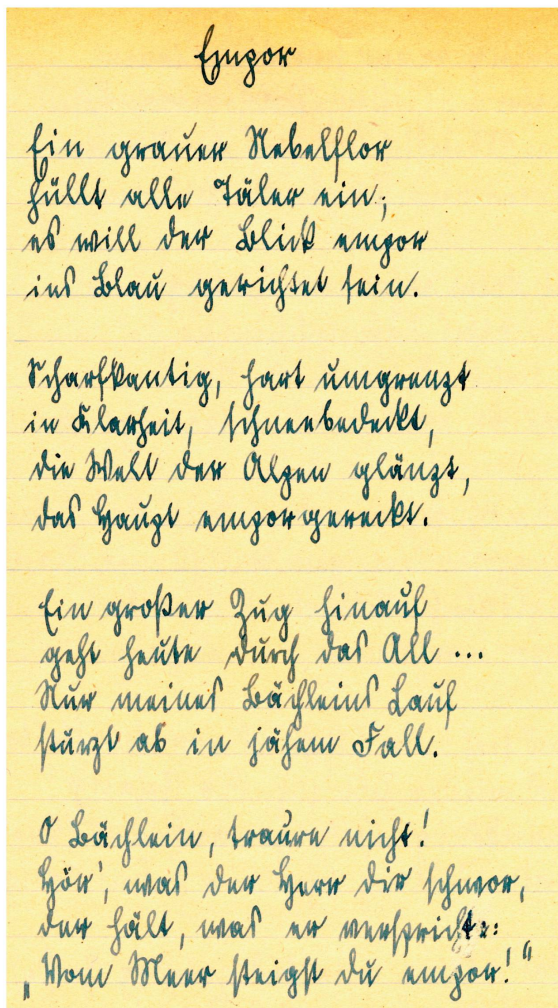 Empor
Ein grauer Nebelflor
hüllt alle Täler ein;
es will der Blick empor
ins Blau gerichtet sein.
Scharfkantig, hart umgrenzt
in Klarheit, schneebedeckt,
die Welt der Alpen glänzt,
das Haupt emporgereckt.
Ein großer Zug hinauf
geht heute durch das All ...
Nur meines Bächleins Lauf
stürzt ab in jähem Fall.
O Bächlein, traure nicht!
Hör', was der Herr dir schwor,
der hält, was er verspricht:
„Vom Meer steigst du empor!“